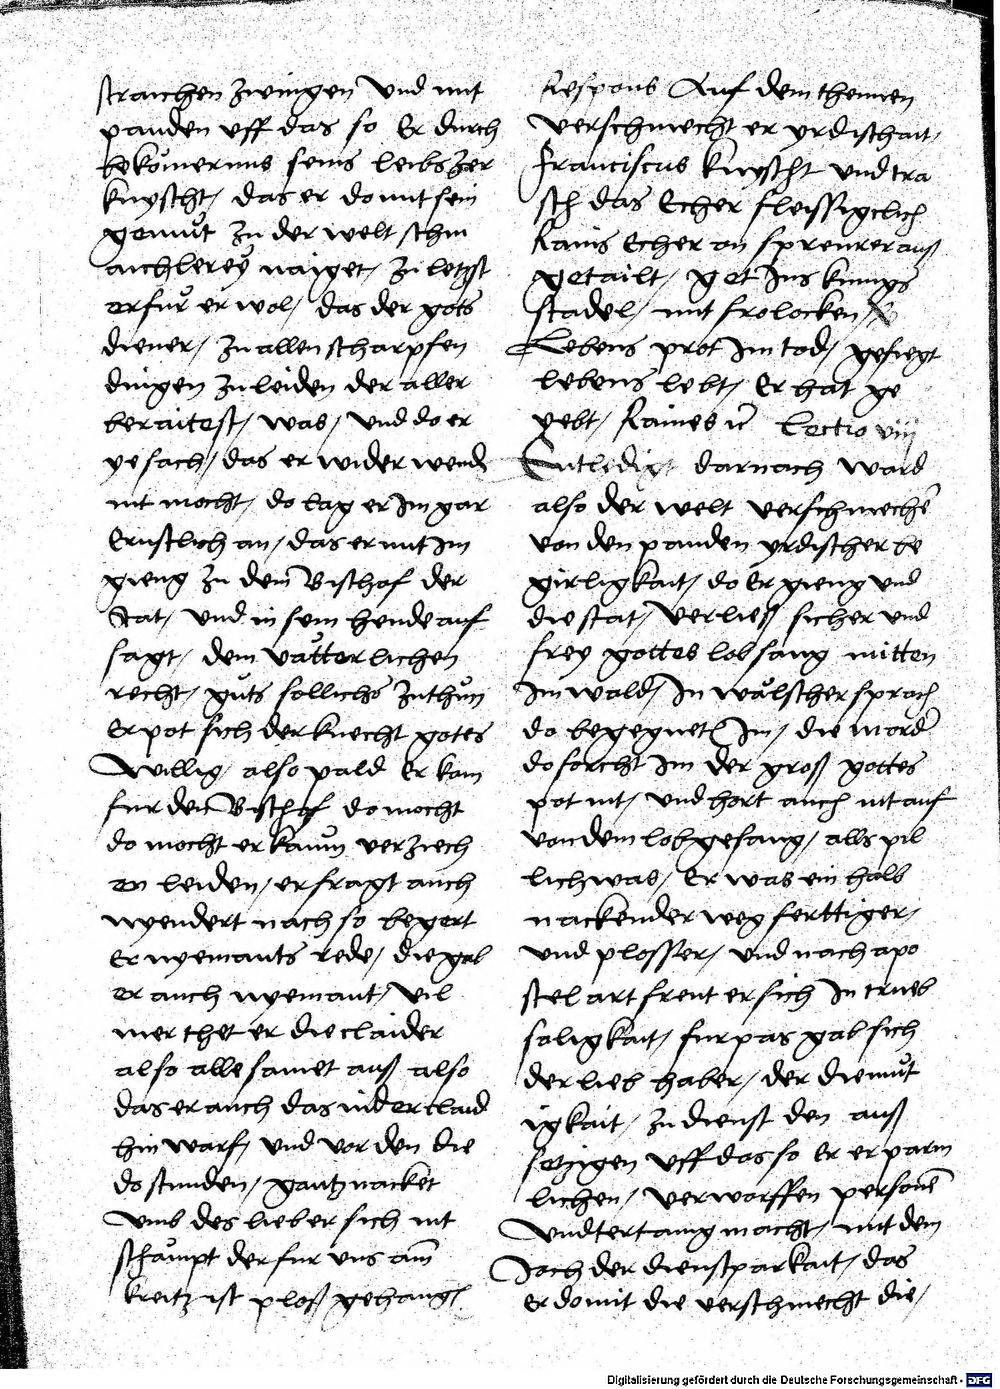 straichen zwingen vnd mit
panden vff das so Er durch
bekömernus seins leibs zer
knyscht/ das er do mit sein
gemüt zu der welt schm
aichlerey naiget/ zu letzst
erfur er wol/ das der gots
diener/ zu allen scharpfen
dingen zu leiden der aller
beraitest/ was/ vnd do er
ye sach/ das er wider wend
nit mocht/ do lag er Im gar
Ernstlich an/ das er mit Im
gieng zu dem Bischof der
stat/ vnd in sein hende auf
sagt/ dem vätterlichen
recht/ guts sollichs zu thun
Er pot sich der knecht gotes
willig/ also pald Er kam
fur den Bischof do mocht
do mocht er kaum verziech
en leiden/ er fragt auch
nyendert nach so begert
Er nyemants rede/ die gab
er auch nyemant/ vil
mer thet er die claider
also alle samet auß also
das er auch das niderclaid
hin warf/ vnd vor den die
do stunden/ gantz nacket
vmb des lieb er sich nit
schämpt der fur vns am
kreitz ist ploß gehang
Respons Auf dem thennen
verschmecht er yrdischait/
Franciscus knyscht vnd tra
sch das Echer fleissigclich
Rains Echer on spreurer auß
getailt/ get Ins kunigs
stadel/ mit frolocken/
Lebens prot Im tod/ gesiegt
lebens lebt/ Er hat ge
yebt/ Raines Lectio viij
Entledigt darnach ward
also der welt verschmecher
von den panden yrdischer be
girligkait/ do Er gieng vnd
die stat/ verließ sicher vnd
frey gottes lobsang mitten
Im wald/ In wälscher sprach
do begegnet Im/ die morder
do forcht Im der groß gottes
pot nit/ vnd hort auch nit auf
von dem lobgesang/ alls pil
lich was/ Er was ein halb
nackender weg ferttiger/
vnd plosser/ vnd nach apo
stel art freut er sich In trueb
saligkait/ furpas gab sich
der lieb haber/ der diemut
igkait/ zu dienst den auß
setzigen vff das so Er erparm
lichen/ verworffen personen
vndtertanig macht/ mit dem
Joch der dienstparkait/ das
er domit die verschmecht die/
Digitalisierung gefördert durch die Deutsche Forschungsgemeinschaft - DFG